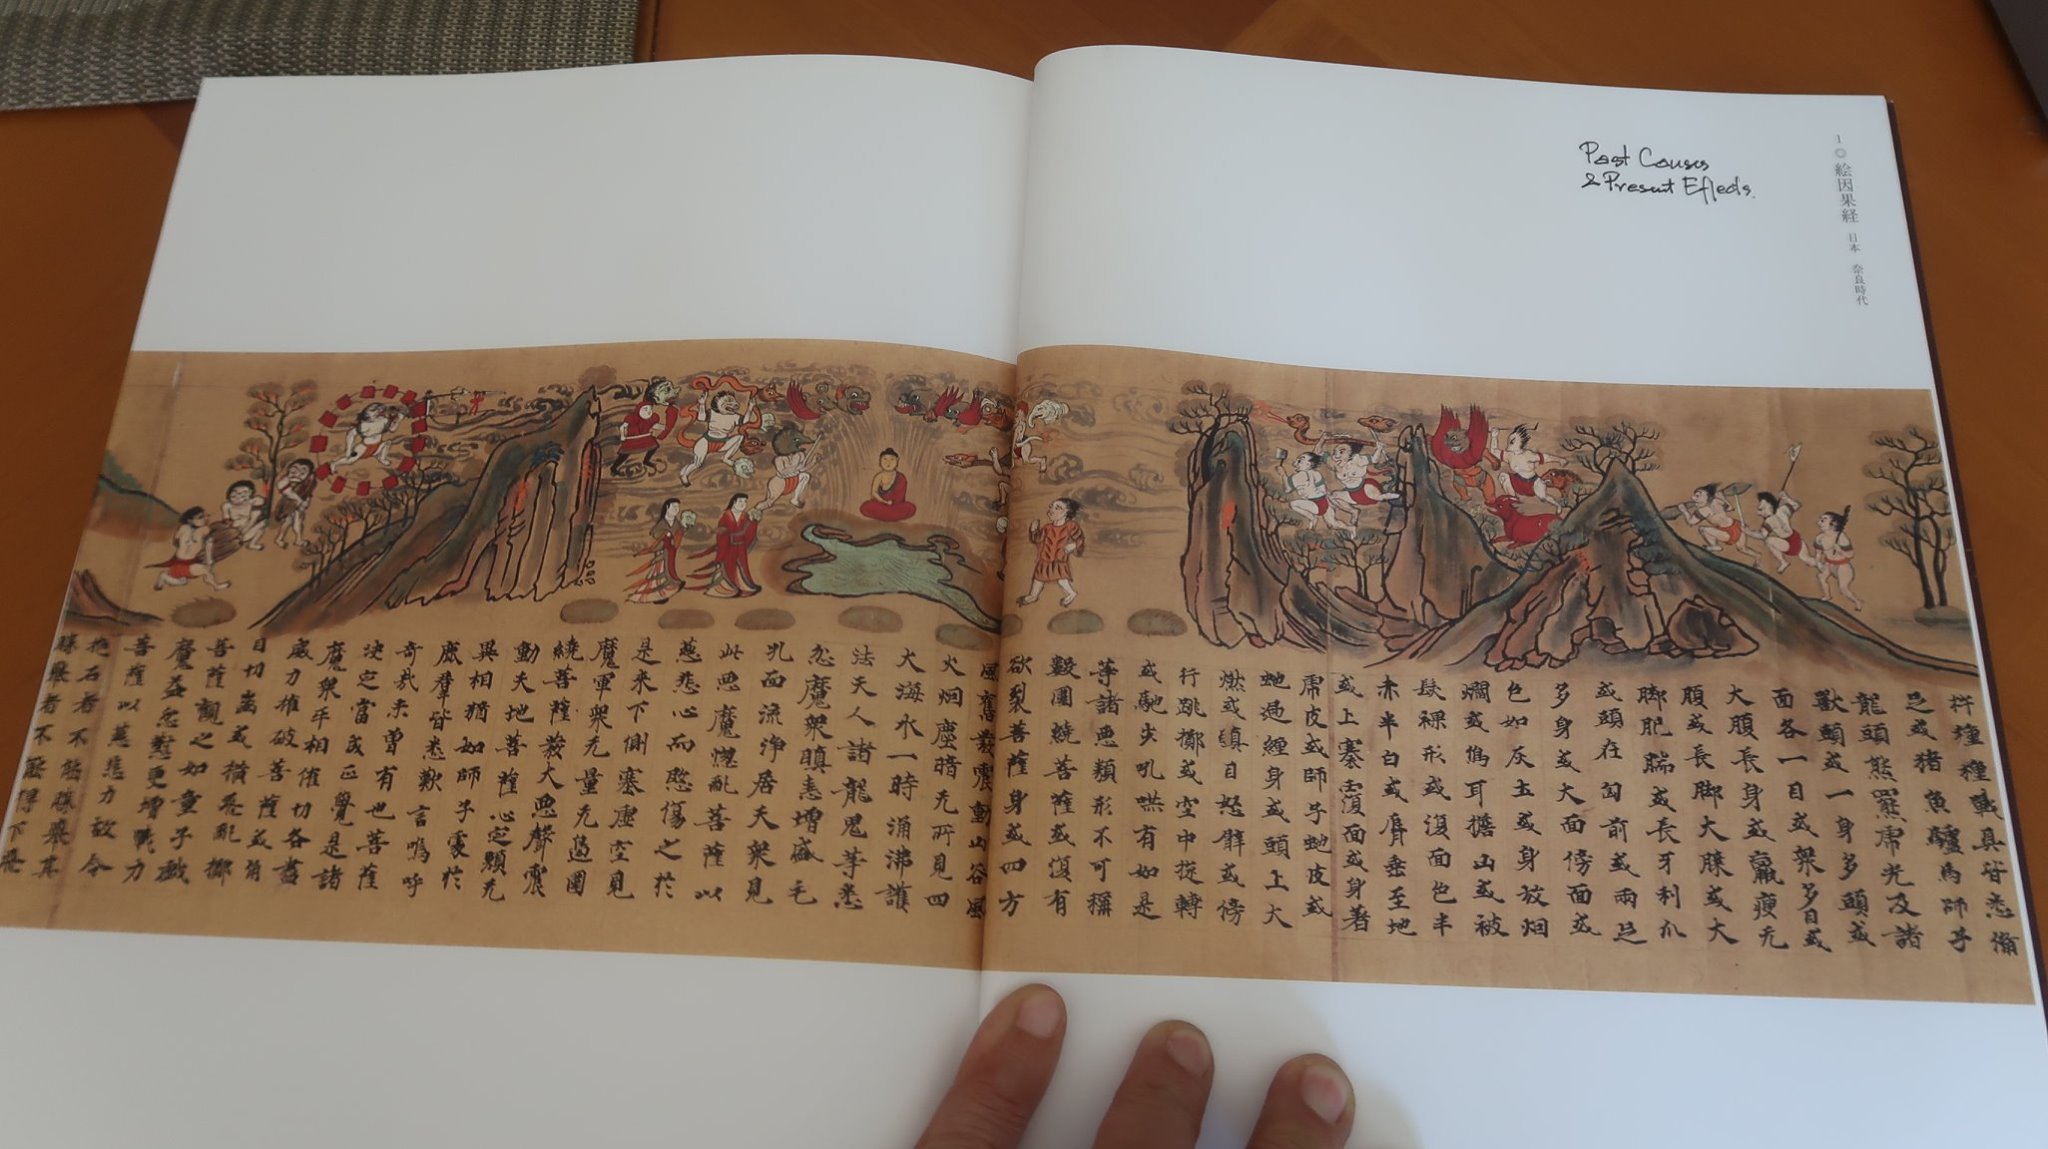 Past Causes
& Present Effects.
1◎絵因果経 日本 奈良時代
杵種種戰具皆悉備
足或猪魚驢馬師子
龍頭熊羆虎兕及諸
獸頭或一身多頭或
面各一目或衆多目或
大腹長身或羸瘦无
腹或長脚大膝或大
脚肥腨或長牙利爪
或頭在匈前或兩足
多身或大面傍面或
色如灰土或身放烟
爓或鳥耳擔山或被
髮裸形或復面色半
赤半白或脣垂至地
或上褰覆面或身著
虎皮或師子虵皮或
虵遍纏身或頭上火
燃或瞋目怒臂或傍
行跳擲或空中旋轉
或馳步吼哮有如是
等諸惡類形不可稱
數圍繞菩薩或復有
欲裂菩薩身或四方
風奮發震動山谷風
火烟塵暗无所見四
大海水一時涌沸護
法天人諸龍鬼等悉
忿魔衆瞋恚增盛毛
孔血流淨居天衆見
此惡魔惱亂菩薩以
慈悲心而愍傷之於
是來下側塞虛空見
魔軍衆无量无邊圍
繞菩薩發大惡聲震
動天地菩薩心定顏无
異相猶如師子處於
鹿群皆悉歎言嗚呼
奇哉未曾有也菩薩
決定當成正覺是諸
魔衆互相催切各盡
威力摧破菩薩或角
目切齒或橫飛亂擲
菩薩觀之如童子戲
魔益忿懟更增戰力
菩薩以慈悲力故令
抱石者不能勝舉其
勝舉者不能得下飛